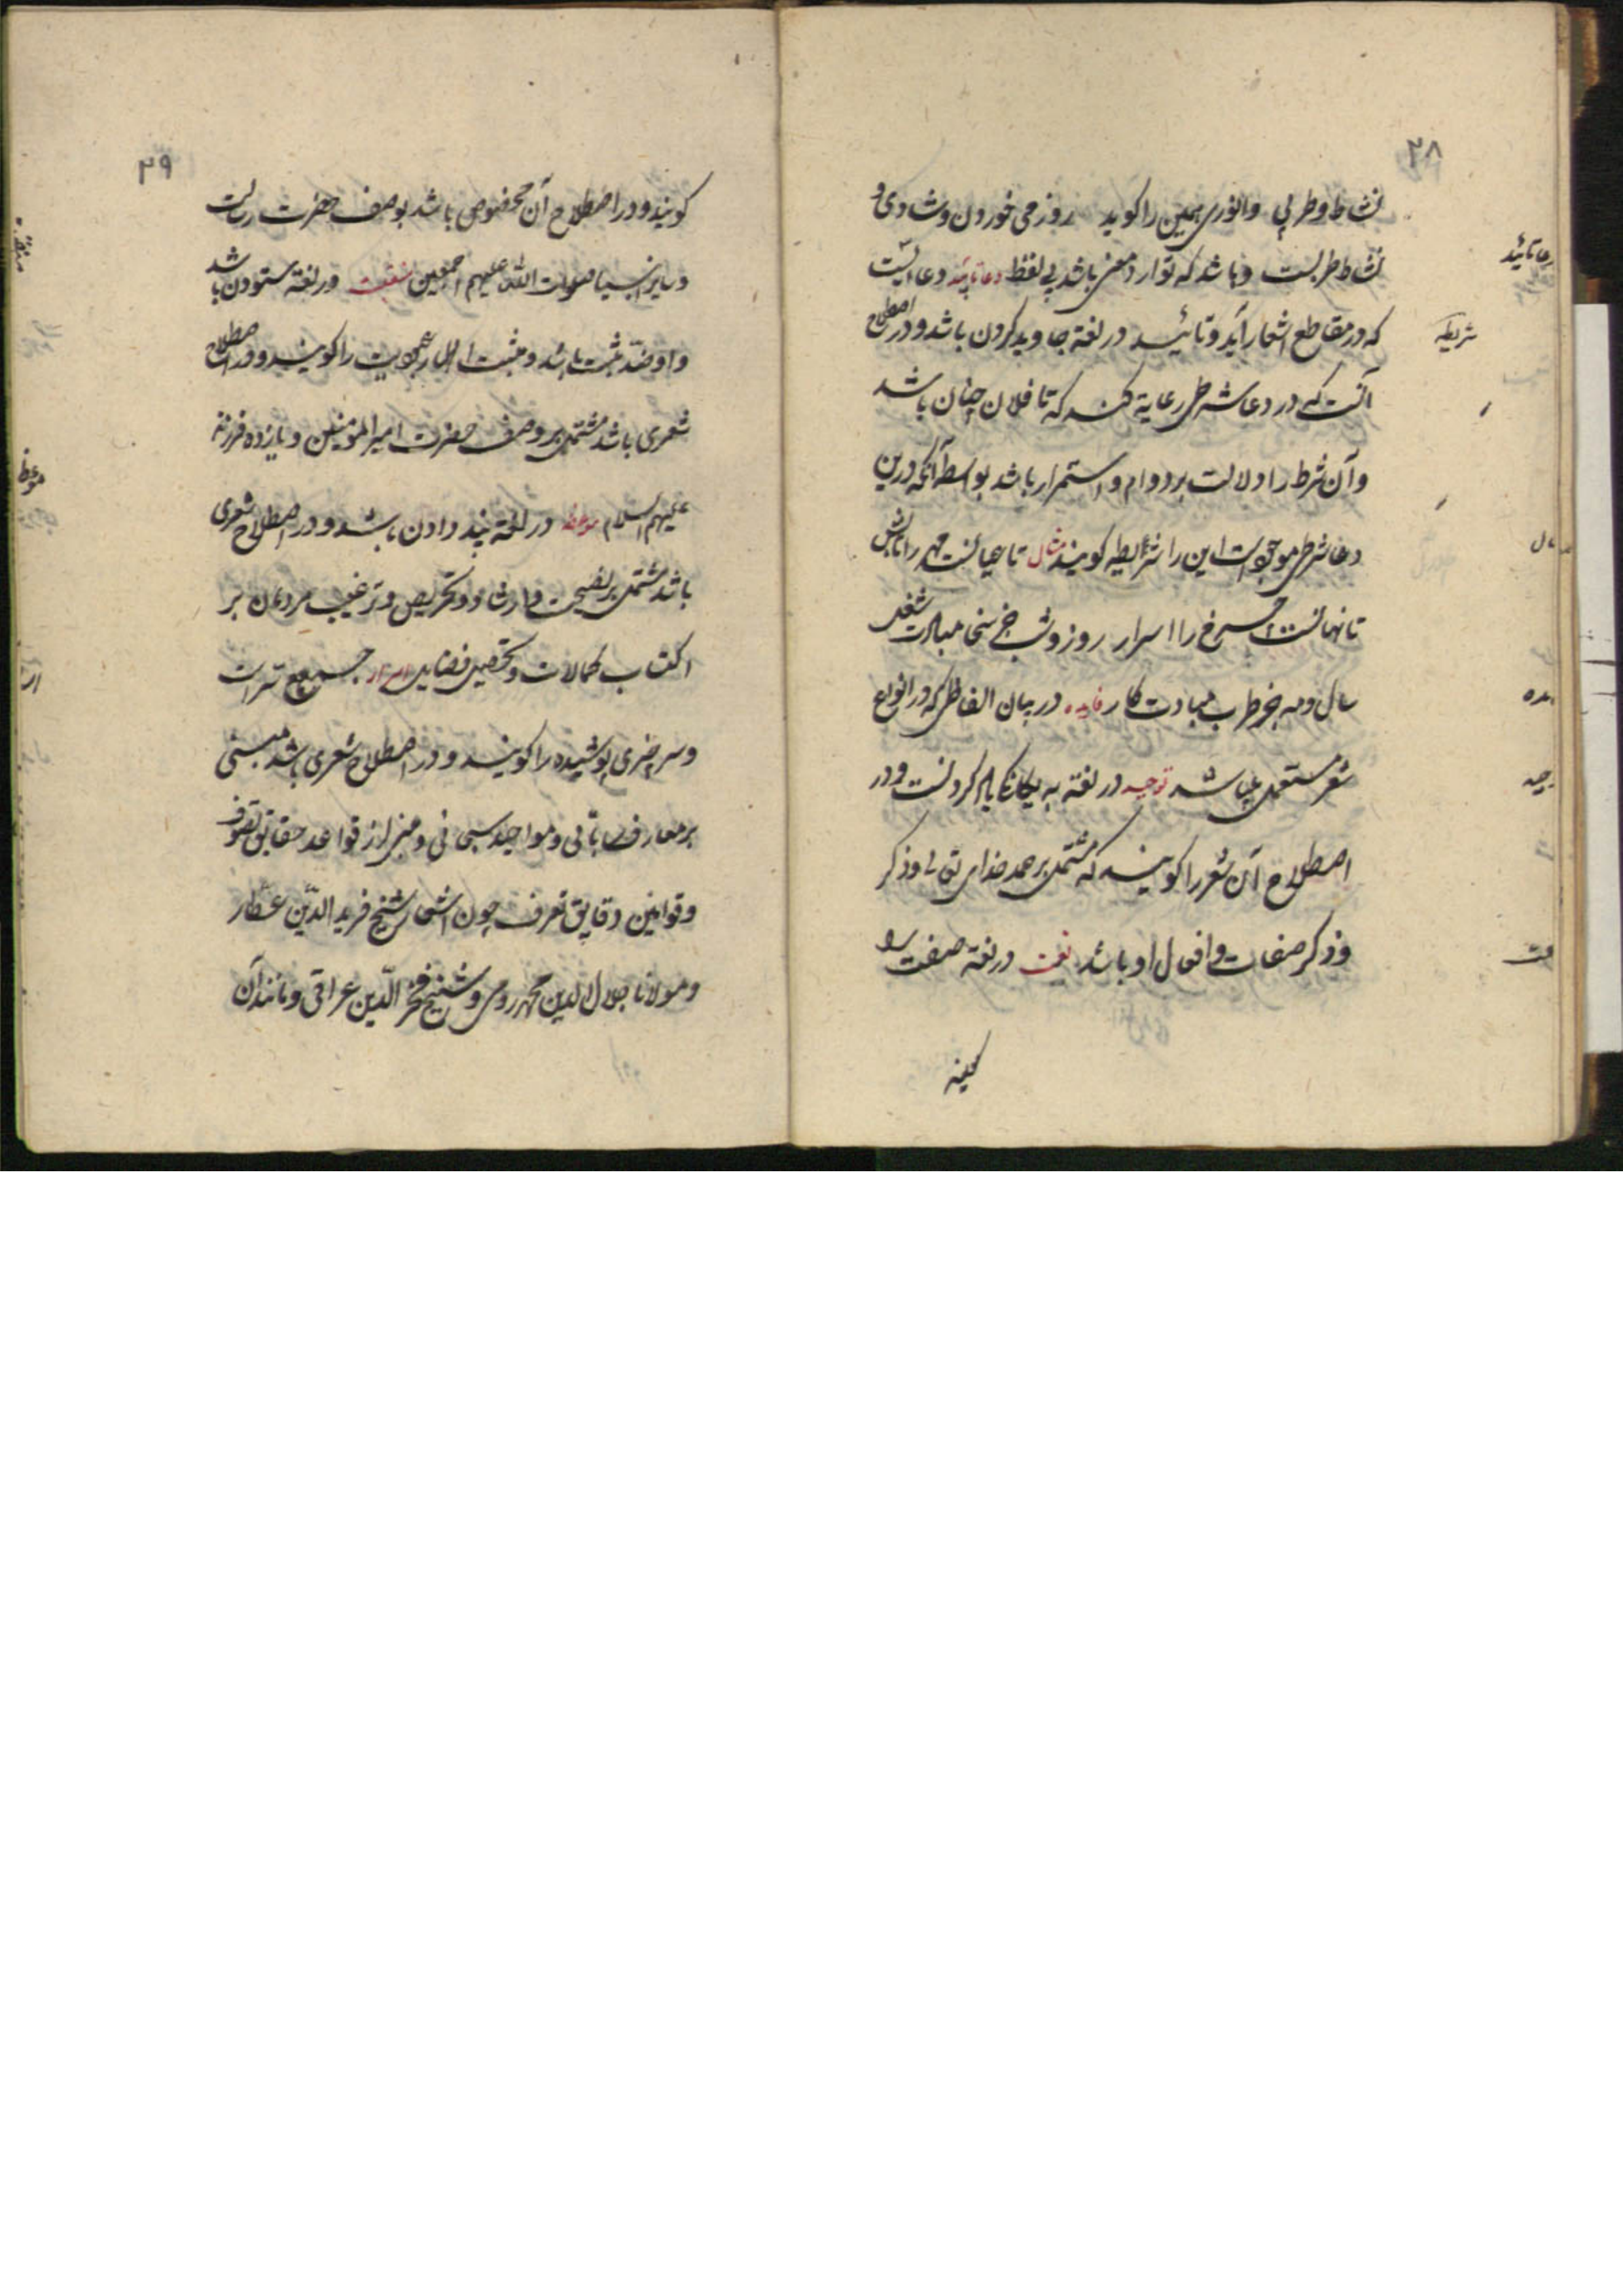 ۲۸
نشاط و طربی والنوری همین را کوید روز می خوردن و شادی و
نشاط طربست و باشد که توارد معنی باشد بی لفظ دعا تایید دعائیست
که در مقاطع اشعار آید و تائید در لغة جاوید کردن باشد و در اصطلاح
آنست که در دعا شرطی رعایة کنند که تا فلان چنان باشد
و آن شرط را دلالت بر دوام و استمرار باشد بواسطه آنکه درین
دعا شرطی موجودست این را شریطه کویند مثال تا عیانست مهر را تابش
تا نهانست چرخ را اسرار روز و شب جز سخا مبادت شغل
سال و مه جز طرب مبادت کار فایده در بیان الفاظی که در انواع
شعر مستعمل میباشد توحید در لغة به یکانکی یاد کردنست و در
اصطلاح آن شعر را کویند که مشتمل بر حمد خدای تعالی و ذکر
و ذکر صفات و افعال او باشد نعت در لغة صفت را
دعا تائید
شریطه
۲۹
کویند و در اصطلاح آن مخصوص باشد بوصف حضرت رسالت
و سایر انبیا صلوات الله علیهم اجمعین منقبت در لغة ستودن باشد
و او ضد باشد و را کویند و در اصطلاح
شعری باشد مشتمل بر وصف حضرت امیر المؤمنین و یازده فرزند
علیهم السلام موعظه در لغة پند دادن باشد و در اصطلاح شعری
باشد مشتمل بر نصیحت و ارشاد و تحریص و ترغیب مردمان بر
اکتساب کمالات و تحصیل فضایل اسرار جمع سرست
و سر چیزی پوشیده را کویند و در اصطلاح شعری باشد مبنی
بر معارف و مواجید سبحانی و مبنی از قواعد حقایق تصوف
و قوانین دقایق تعرف چون اشعار شیخ فرید الدین عطار
و مولانا جلال الدین محمد رومی و شیخ فخر الدین عراقی و مانند آن
منقبة
موعظه